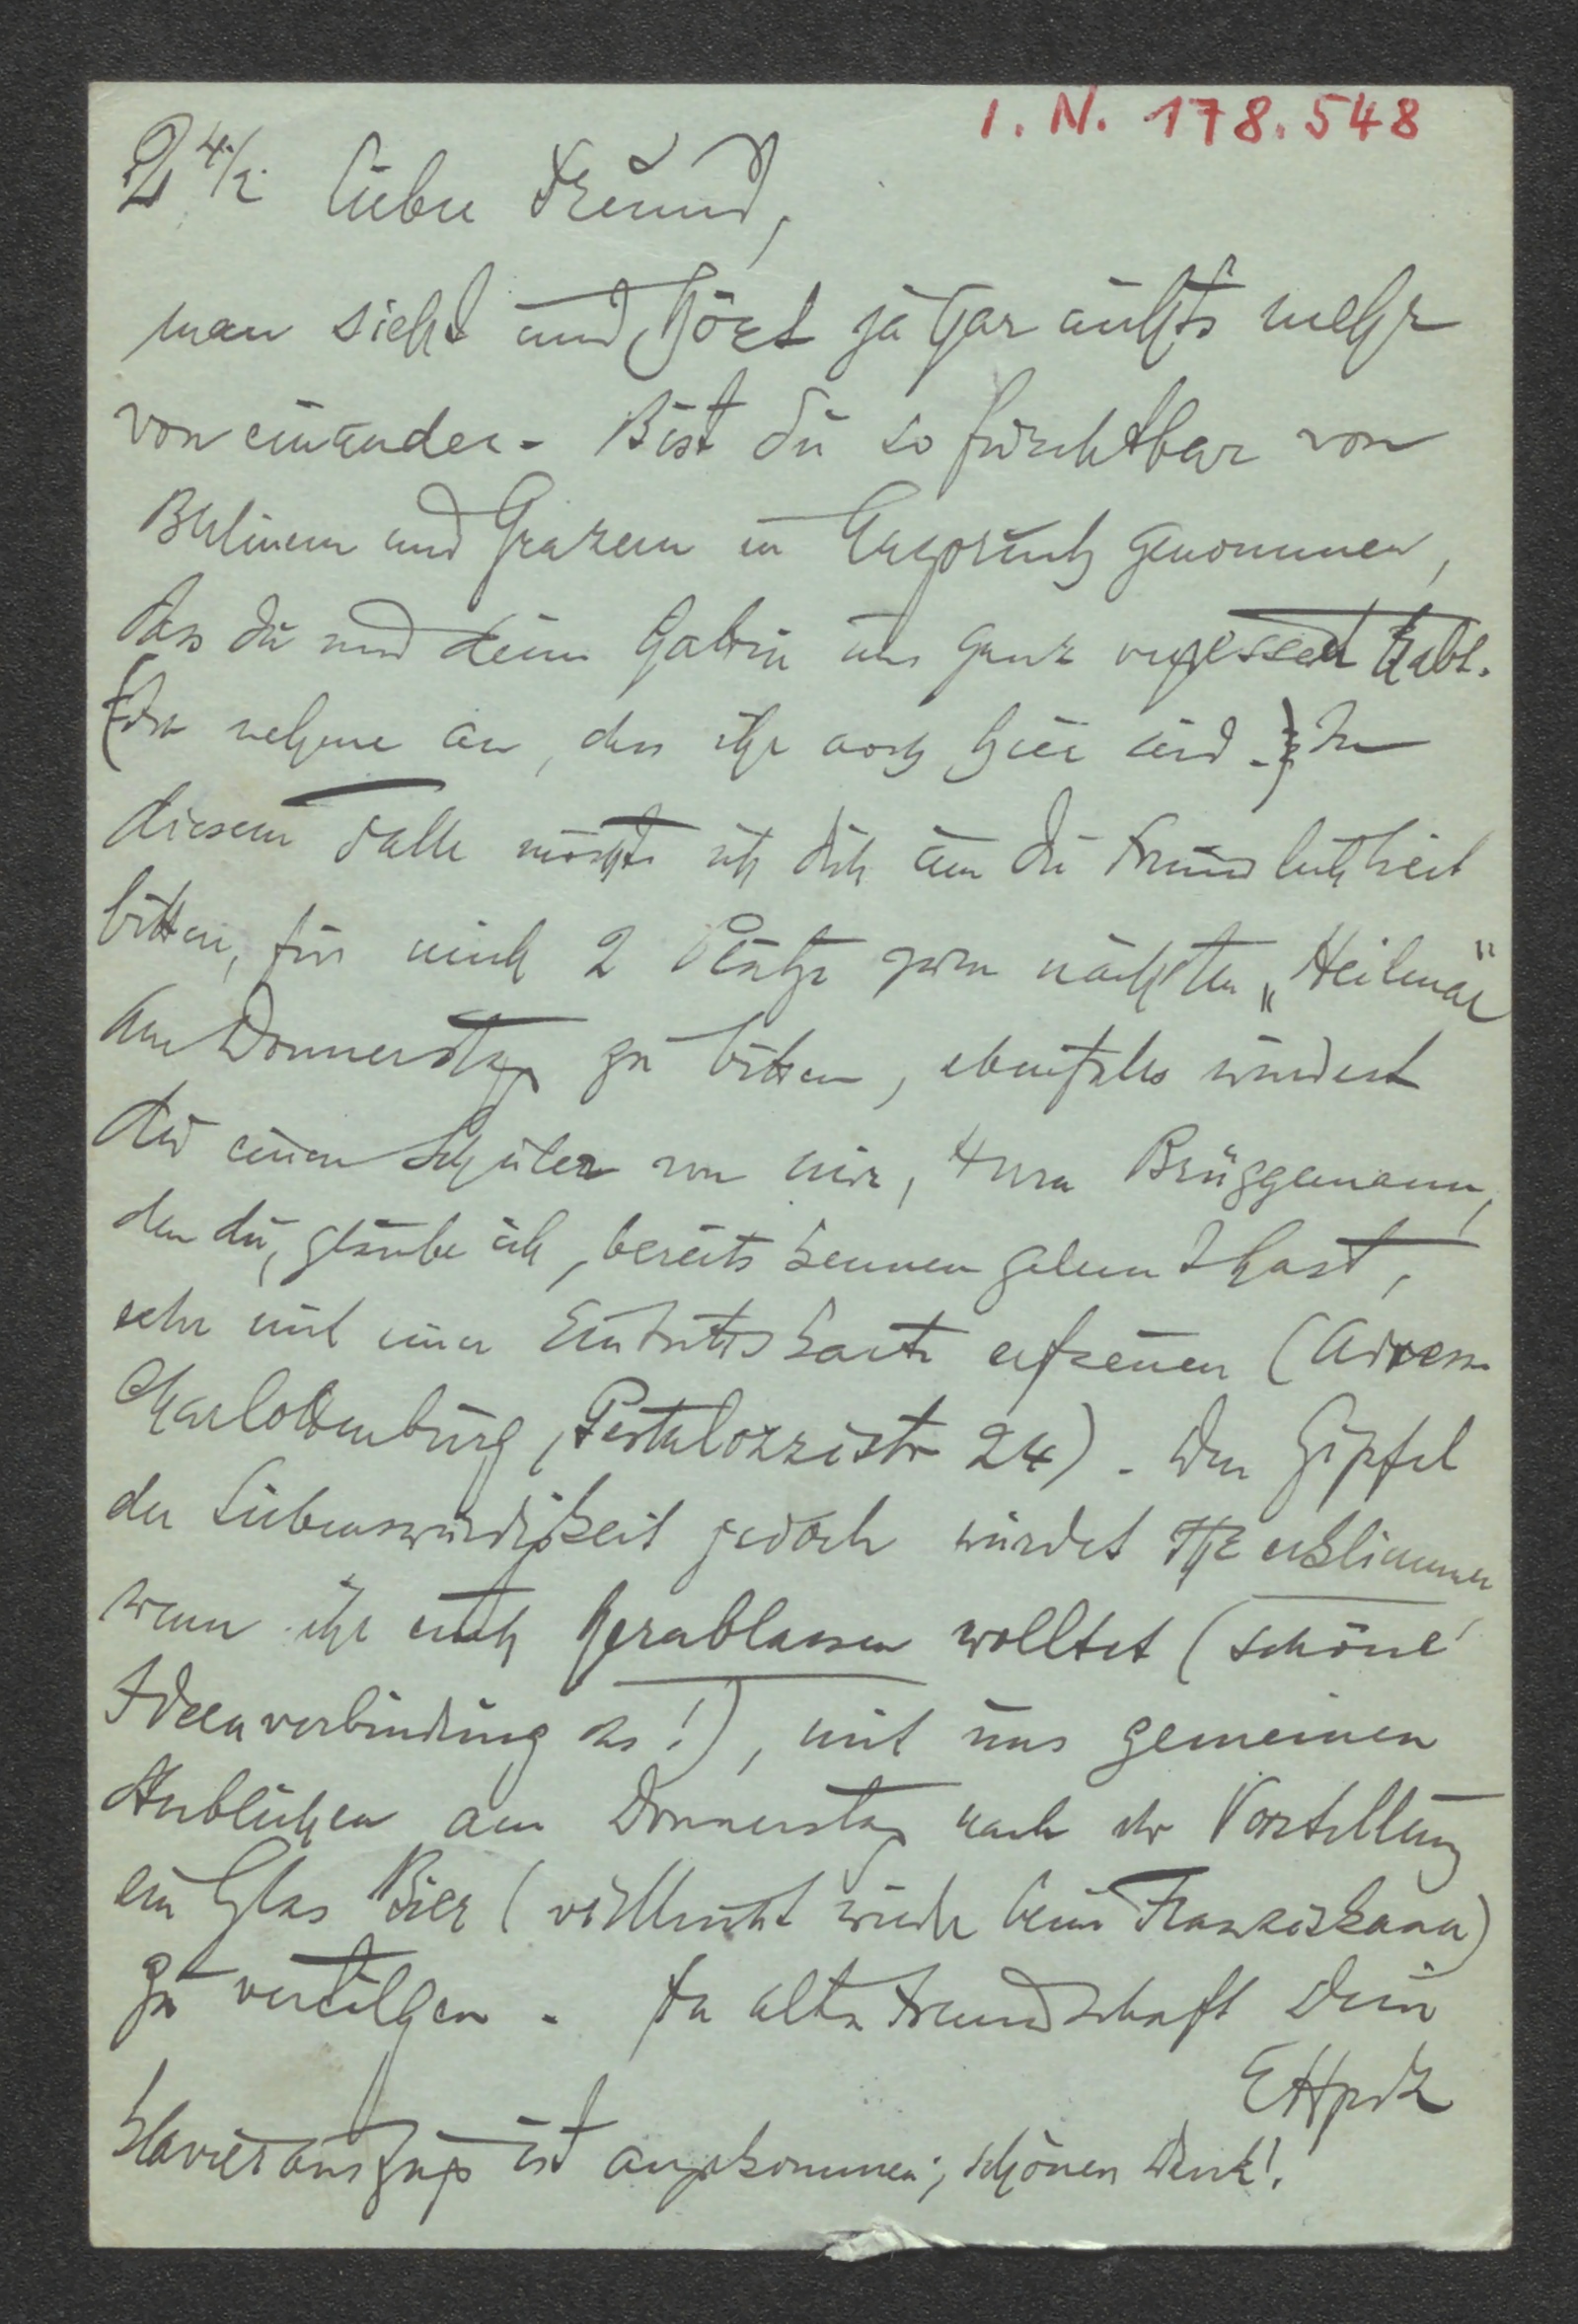 I. N. 178.548
4/2. Lieber Freund,
man sieht und hört ja gar nichts mehr
von einander. Bist du so furchtbar von
Berlinern und Grazern in Anspruch genommen,
dass du und deine Gattin uns ganz vergessen habt.
(Ich nehme an, dass ihr noch hier seid.) In
diesem Falle möchte ich dich um die Freundlichkeit
bitten, für mich 2 Plätze zum nächsten „Heilmar"
am Donnerstag zu bitten, ebenfalls würdest
du einen Schüler von mir, Herrn Brüggemann,
den du, glaube ich, bereits kennen gelernt hast,
sehr mit einer Eintrittskarte erfreuen (Adresse
Charlottenburg, Pestalozzistr 24). Den Gipfel
der Liebenswürdigkeit jedoch würdet Ihr erklimmen
wenn ihr euch herablassen wolltet (schöne
Ideenverbindung das!), mit uns gemeinen
Sterblichen am Donnerstag nach der Vorstellung
ein Glas Bier (vielleicht wieder beim Franziskaner)
zu vertilgen. In alter Freundschaft Dein
Klavierauszug ist angekommen; schönen Dank!